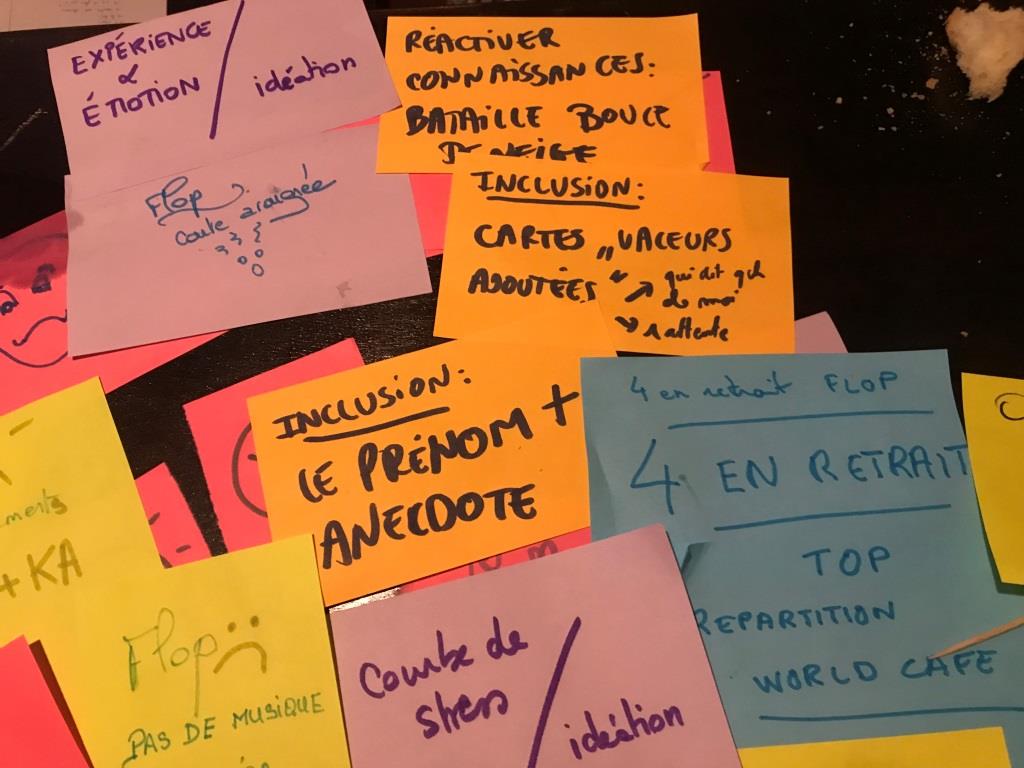 EXPÉRIENCE
&
ÉMOTION / idéation
RÉACTIVER
CONNAISSANCES:
BATAILLE BOULE
DE NEIGE
Flop
araignée
INCLUSION:
CARTES "VALEURS
AJOUTÉES"
→ qui dit qch
de moi
↘ 1 attente
INCLUSION:
LE PRÉNOM +
ANECDOTE
4 en retrait FLOP
4 EN RETRAIT
TOP
REPARTITION
WORLD CAFE
ments
+ KA
Flop
PAS DE MUSIQUE
Courbe de
stress / idéation